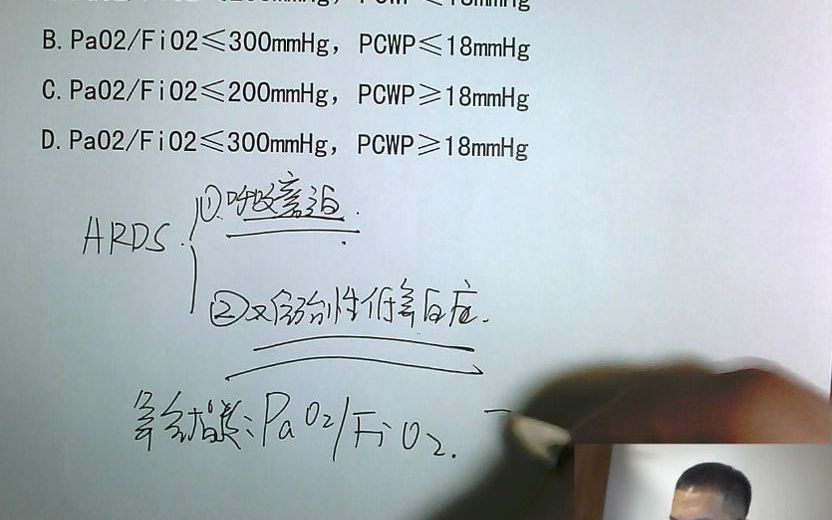 mmHg
B. PaO2/FiO2≤300mmHg, PCWP≤18mmHg
C. PaO2/FiO2≤200mmHg, PCWP≥18mmHg
D. PaO2/FiO2≤300mmHg, PCWP≥18mmHg
① 呼吸窘迫.
ARDS
② 性低氧反应.
氧合指数: PaO2/FiO2.